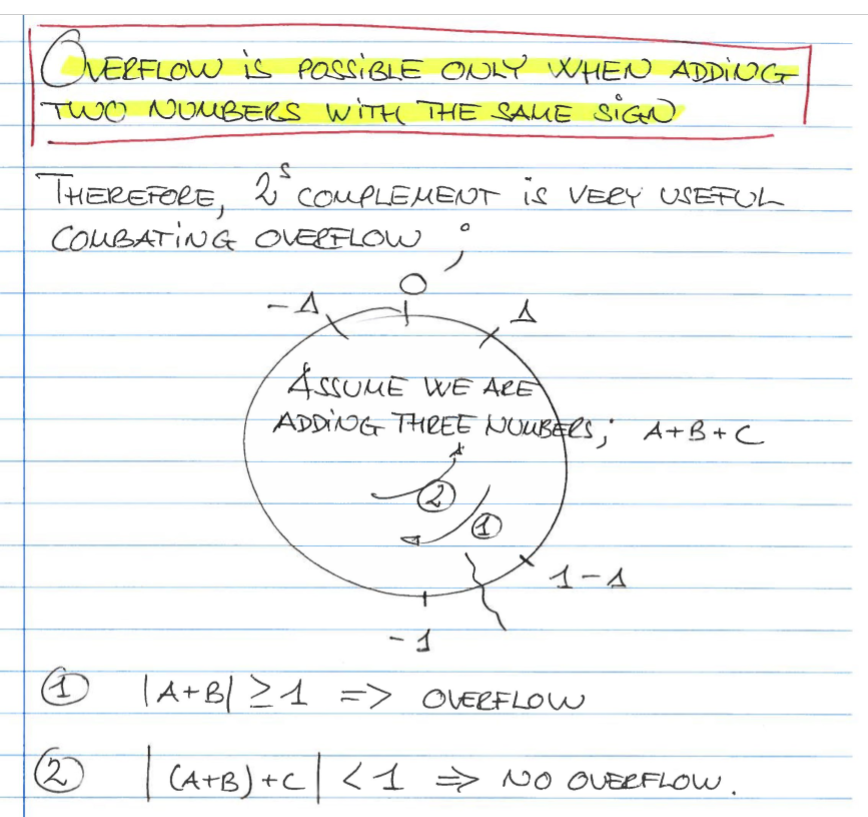 OVERFLOW is POSSIBLE ONLY WHEN ADDING
TWO NUMBERS WITH THE SAME SIGN
THEREFORE, 2^s COMPLEMENT is VERY USEFUL
COMBATING OVERFLOW ;
0
-Δ
Δ
ASSUME WE ARE
ADDING THREE NUMBERS; A+B+C
②
①
1-Δ
-1
① |A+B| ≥ 1 => OVERFLOW
② |(A+B)+C| < 1 => NO OVERFLOW.